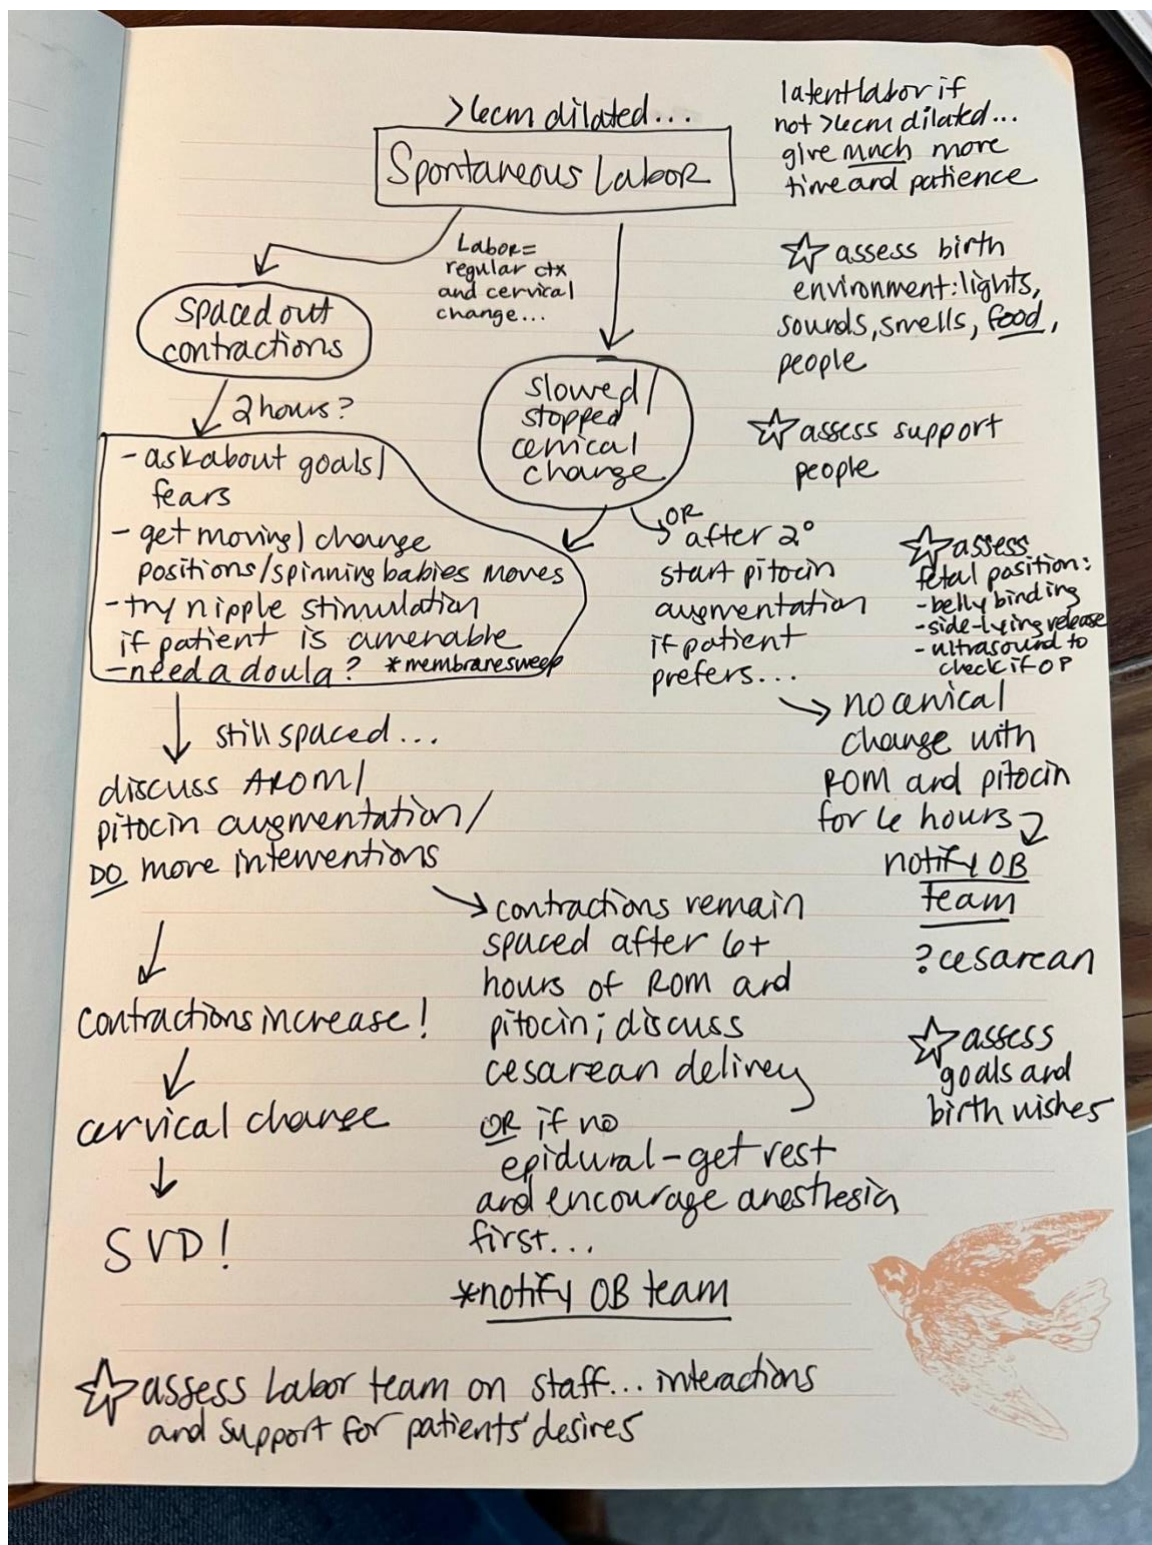 >6cm dilated...
Spontaneous Labor
latent labor if
not >6cm dilated...
give much more
time and patience
Labor=
regular ctx
and cervical
change...
spaced out
contractions
2 hours?
slowed/
stopped
cervical
change
☆ assess birth
environment: lights,
sounds, smells, food,
people
☆ assess support
people
- ask about goals/
fears
- get moving/change
positions/spinning babies moves
- try nipple stimulation
if patient is amenable
- need a doula? *membrane sweep
OR
after 2°
start pitocin
augmentation
if patient
prefers...
☆ assess
fetal position:
- belly binding
- side-lying release
- ultrasound to
check if OP
no cervical
change with
ROM and pitocin
for 6 hours
notify OB
team
? cesarean
still spaced...
discuss AROM/
pitocin augmentation/
DO more interventions
contractions remain
spaced after 6+
hours of ROM and
pitocin; discuss
cesarean delivery
OR if no
epidural - get rest
and encourage anesthesia
first...
*notify OB team
contractions increase!
cervical change
SVD!
☆ assess
goals and
birth wishes
☆ assess Labor team on staff... interactions
and support for patients' desires